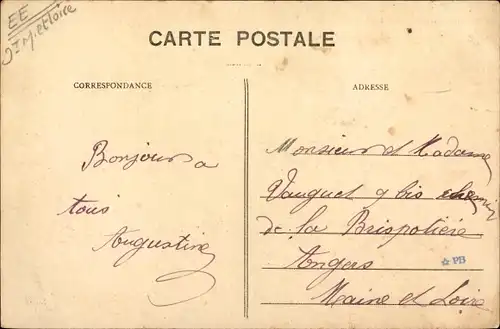 EE
CARTE POSTALE
CORRESPONDANCE
ADRESSE
Bonjour a
tous
Augustine
Monsieur et Madame
9 bis chemin
de la Brispotière
Angers
PB
Maine et Loire